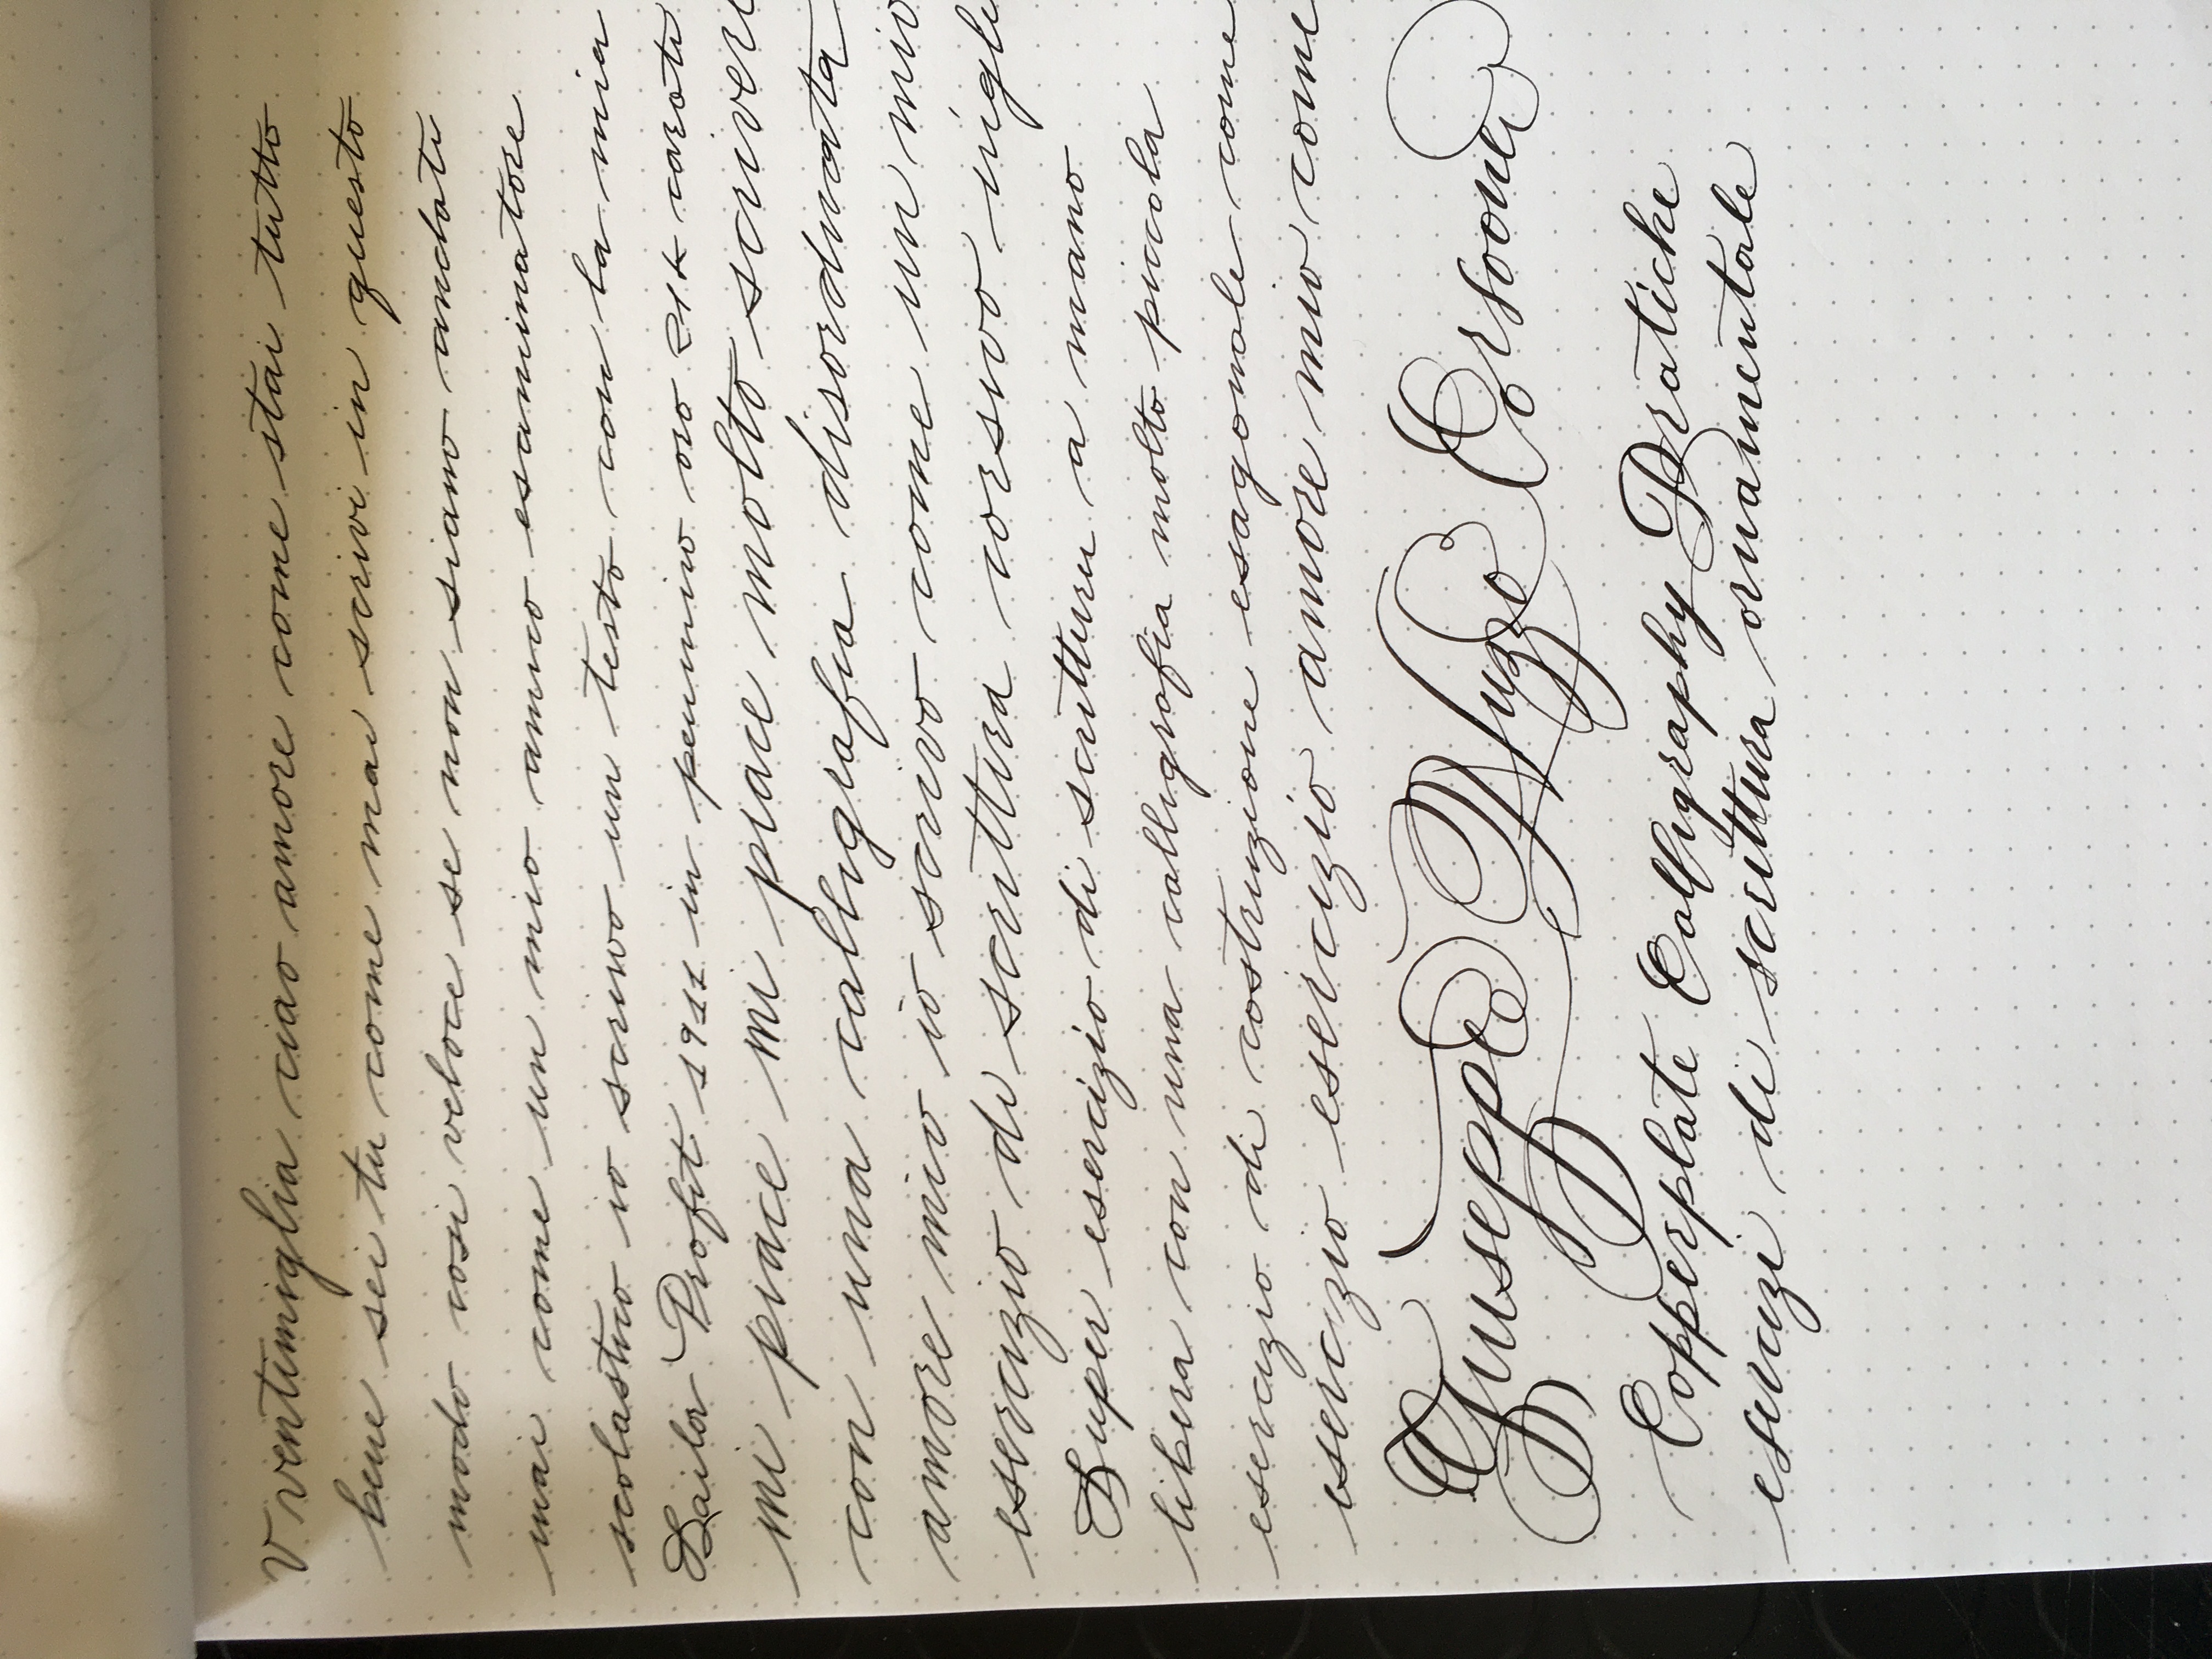 V ventimiglia ciao amore come stai tutto
bene sei tu come mai scrivi in questo
modo cosi veloce se non siamo andati
mai come un mio amino esaminatore
scolastico io scrivo un testo con la mia
Sailor Profit 1911 in pennino oro 21k carati
mi piace mi piace molto scrivere
con una calligrafia disordinata
amore mio io scrivo come un mio
esercizio di scrittura corsivo ingle
Super esercizio di scrittura a mano
libera con una calligrafia molto piccola
esercizio di costruzione esagonale come
esercizio esercizio amore mio come
Giuseppe
Copperplate Calligraphy Pratiche
esercizi di scrittura ornamentale